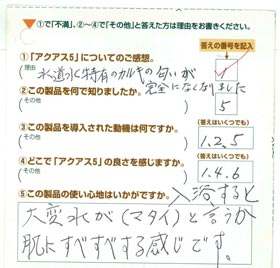 ①で「不満」、②~④で「その他」と答えた方は理由をお書きください。
答えの番号を記入
①「アクアス5」についてのご感想。
(理由 水道水特有のカルキの匂いが完全になくなりました
②この製品を何で知りましたか。
(その他 )
5
③この製品を導入された動機は何ですか。
(答えはいくつでも)
(その他 )
1.2.5
④どこで「アクアス5」の良さを感じますか。
(答えはいくつでも)
(その他 )
1.4.6
⑤この製品の使い心地はいかがですか。
入浴すると
大変水が(マタイ)と言うか
肌にすべすべする感じです。